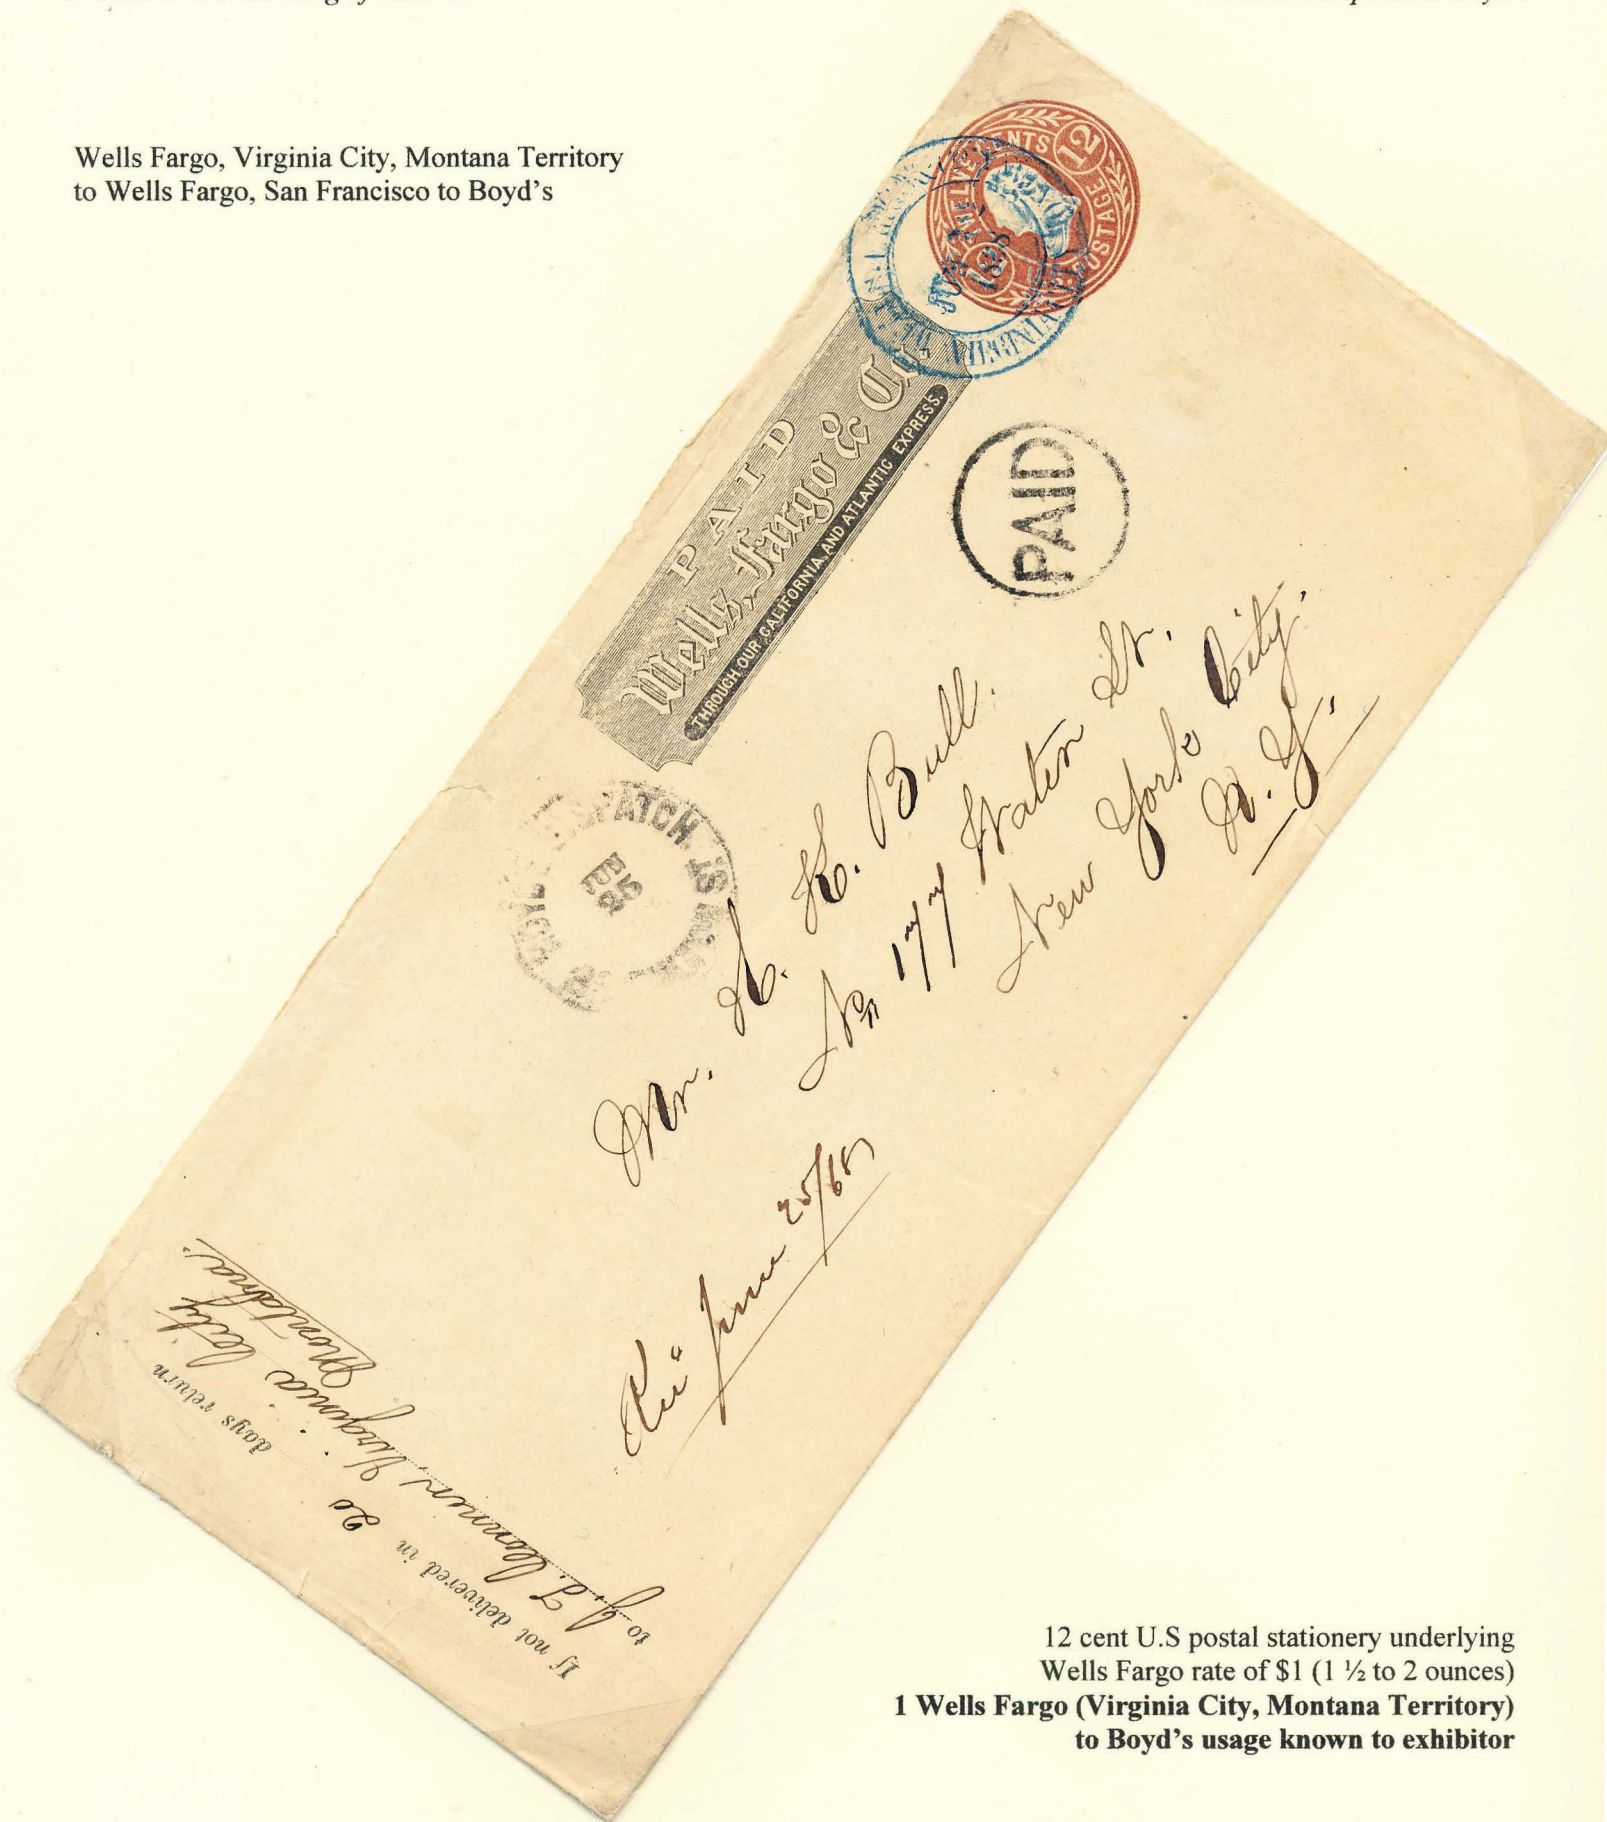 Wells Fargo, Virginia City, Montana Territory
to Wells Fargo, San Francisco to Boyd's
TWELVE CENTS 12
U.S. POSTAGE 12
VIRGINIA CITY
JUN
PAID
Wells, Fargo & Co.
THROUGH OUR CALIFORNIA AND ATLANTIC EXPRESS.
PAID
DISPATCH.
Mr. H. K. Bull.
No 177 Water St.
New York City.
N. Y.
June 25/68
If not delivered in 20 days return
to J. F. Virginia City
Montana
12 cent U.S postal stationery underlying
Wells Fargo rate of $1 (1 ½ to 2 ounces)
1 Wells Fargo (Virginia City, Montana Territory)
to Boyd's usage known to exhibitor